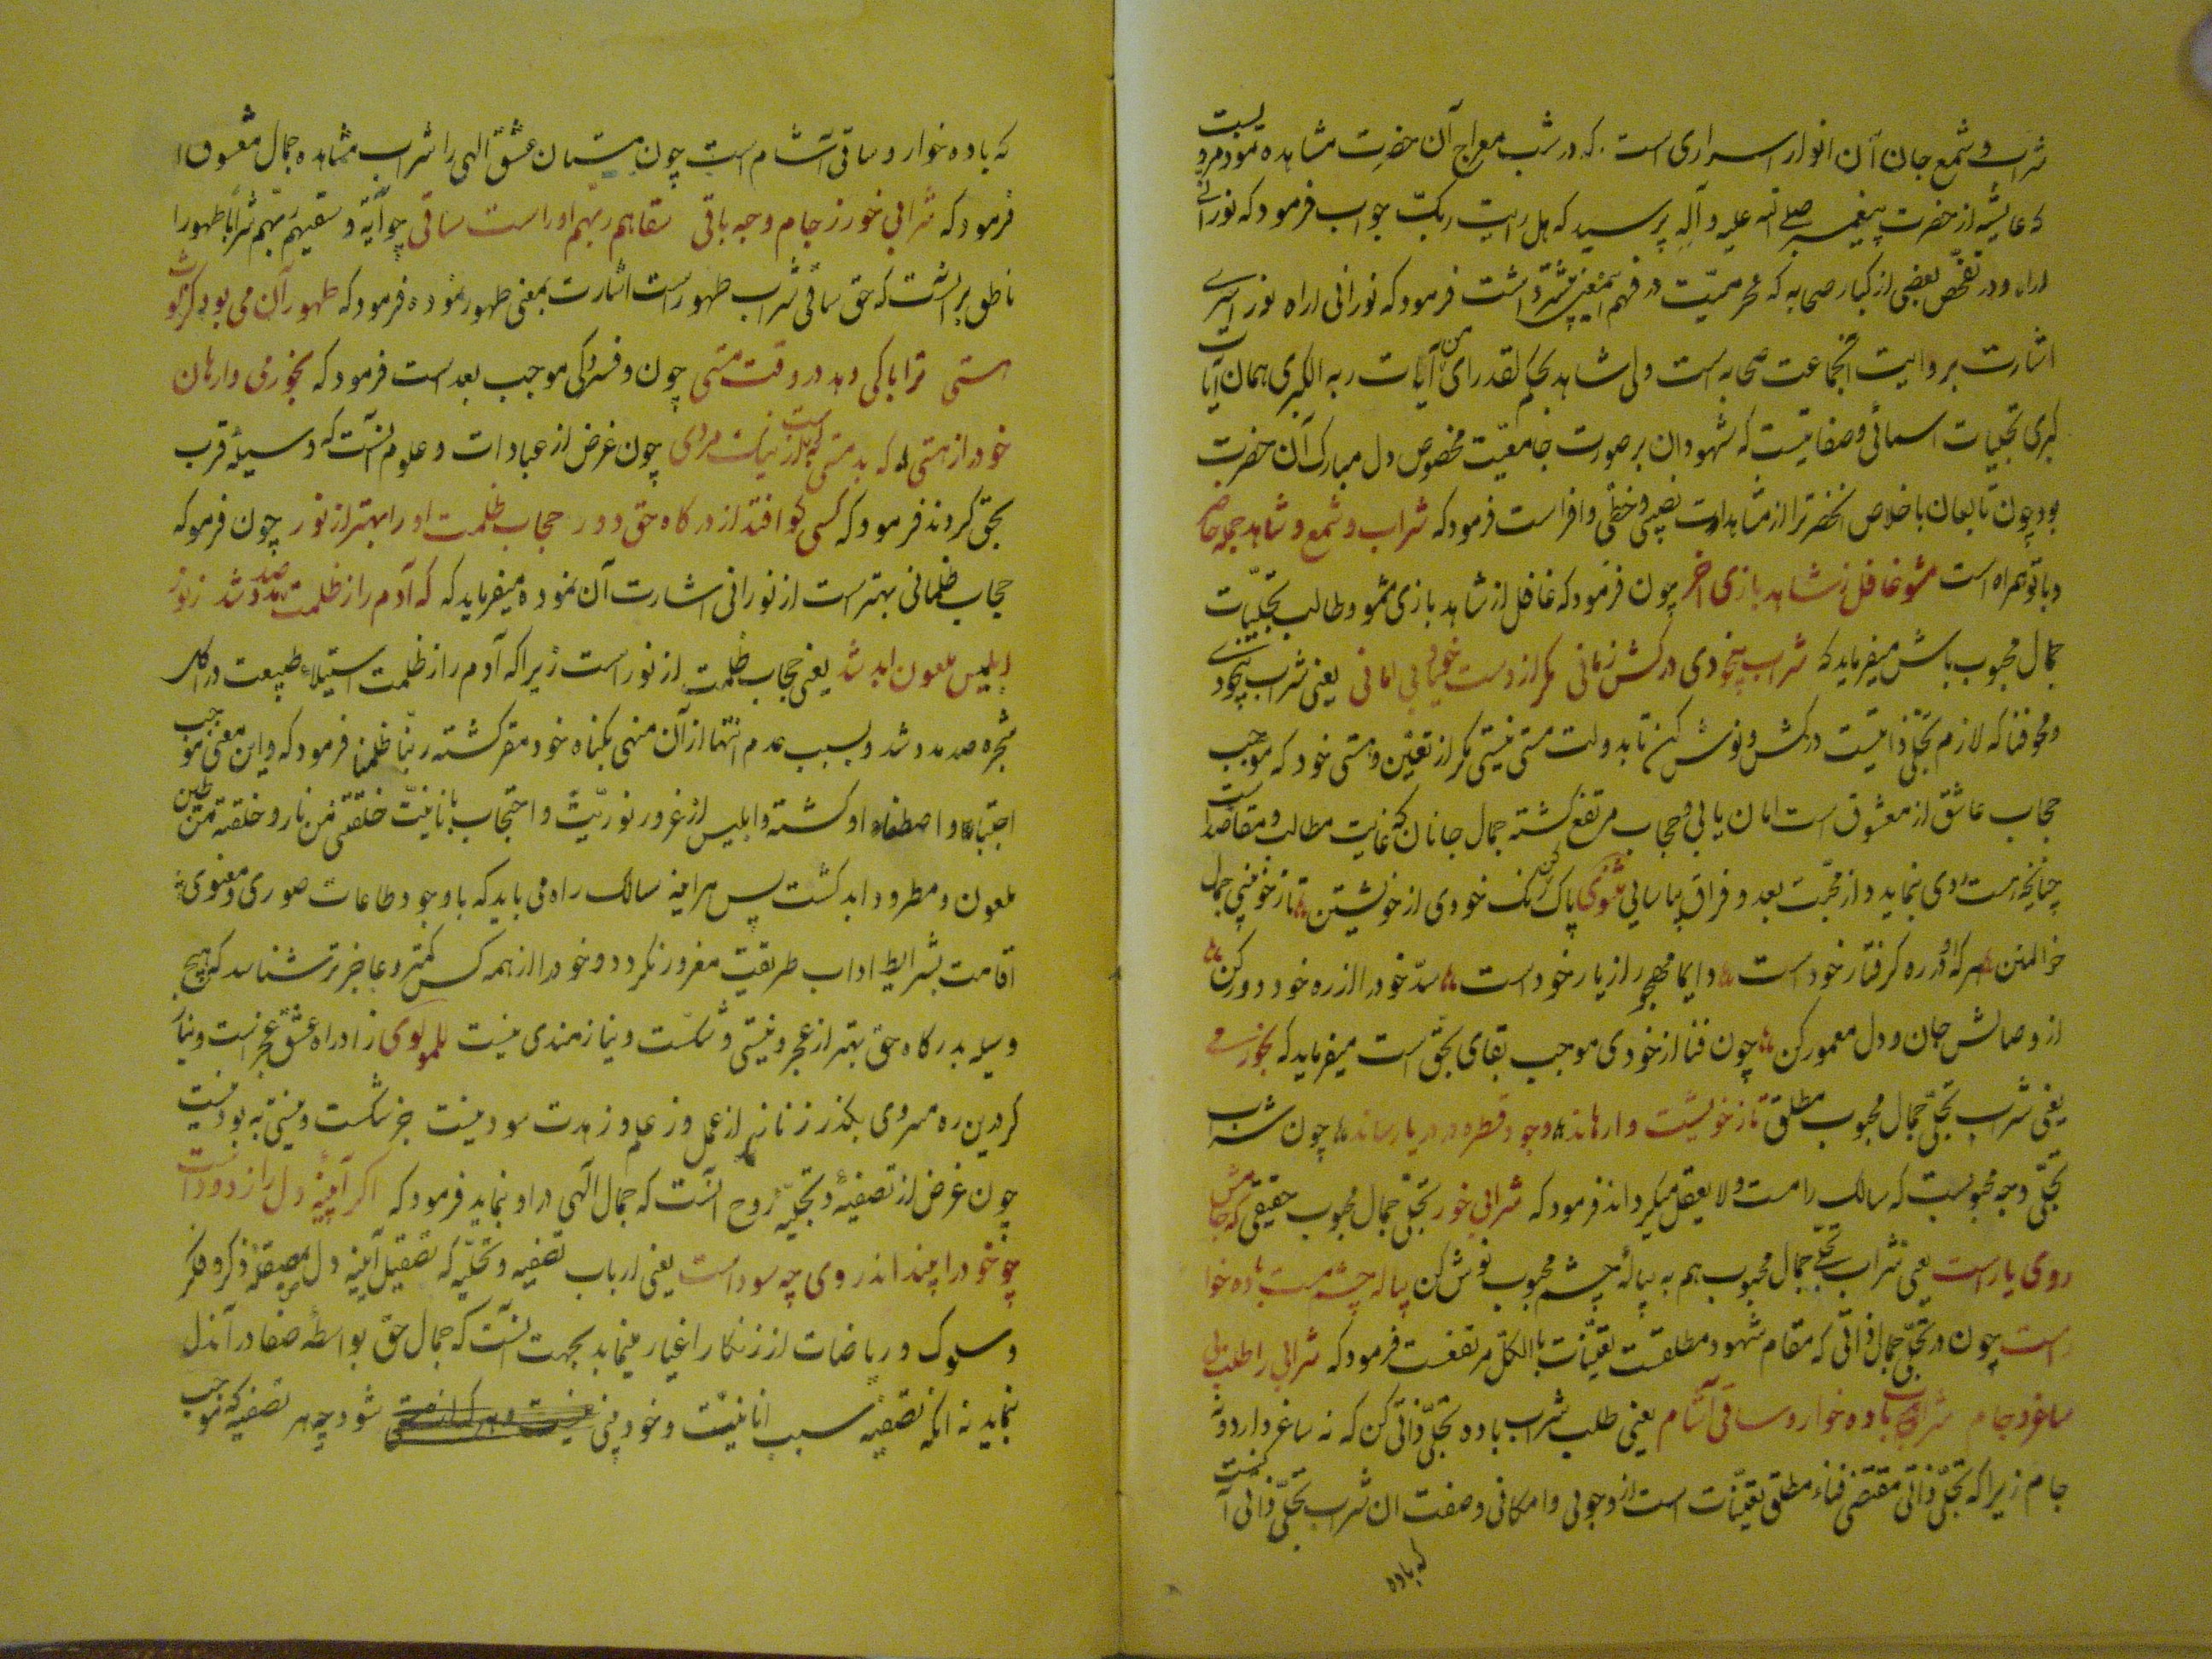 شراب و شمع جان آن انوار اسراری است که در شب معراج آن حضرت مشاهده نمود مرویست
که عایشه از حضرت پیغمبر صلی الله علیه و آله پرسید که هل رایت ربک جواب فرمود که نورانی
اراه و در تفحص بعضی از کبار صحابه که محرمیت در فهم این معنی بیشتر داشت فرمود که نورانی اراه نور اسری
اشارت بروایت آنجماعت صحابه است ولی شاهد بحکم لقد رای من آیات ربه الکبری همان آیات
کبری تجلیات اسمائی و صفاتیست که شهود آن بر صورت جامعیت مخصوص دل مبارک آن حضرت
بود چون تابعان باخلاص آنحضرت را از مشاهدات نصیبی و حظی وافر است فرمود که شراب و شمع و شاهد جمله حاضر
و با تو همراه است مشو غافل ز شاهد بازی آخر چون فرمود که غافل از شاهد بازی مشو و طالب تجلیات
جمال محبوب باش میفرماید که شراب بیخودی درکش زمانی مگر از دست خود یابی امانی یعنی شراب بیخودی
و محو فنا که لازم تجلی ذاتیست درکش و نوش کن تا بدولت مستی نیستی مگر از تعین و هستی خود که موجب
حجاب عاشق از معشوق است امان یابی و حجاب مرتفع گشته جمال جانان که غایت مطالب و مقاصد است
چنانچه هست روی نماید و از محبت بعد و فراق بیاسایی مثنوی پاک کن رنگ خودی از خویشتن تا ز خود بینی جمال
ذوالمنن هرکه او در ره گرفتار خود است دایما مهجور از یار خود است سد خود را از ره خود دور کن
از وصالش جان و دل معمور کن چون فنا از خودی موجب بقای بحق است میفرماید که بخور می
یعنی شراب تجلی جمال محبوب مطلق تا ز خویشت وارهاند وجود قطره در دریا رساند چون شراب
تجلی وجه محبوبست که سالک را مست و لایعقل میگرداند فرمود که شرابی خور تجلی جمال محبوب حقیقی که جامش
روی یار است یعنی شراب تجلی جمال محبوب هم به پیاله چشم محبوب نوش کن پیاله چشم مست باده خوار
است چون در تجلی جمال ذاتی که مقام شهود مطلقست تعینات بالکل مرتفعست فرمود که شرابی را طلب بی
ساغر و جام شراب باده خوار و ساقی آشام یعنی طلب شراب باده تجلی ذاتی کن که نه ساغر دارد و نه
جام زیرا که تجلی ذاتی مقتضی فناء مطلق تعینات است از وجوبی و امکانی و صفت آن شراب تجلی ذاتی آنست
که باده
که باده خوار و ساقی آشام است چون مستان عشق الهی را شراب مشاهده جمال معشوق
فرمود که شرابی خور ز جام وجه باقی سقاهم ربهم او راست ساقی چو آیه و سقیهم ربهم شرابا طهورا
ناطق بر آنست که حق ساقی شراب طهور است اشارت بمعنی طهور نموده فرمود که طهور آن می بود کز لوث
هستی ترا پاکی دهد در وقت مستی چون فسردگی موجب بعد است فرمود که بخور می وارهان
خود را ز هستی که بد مستی به است از نیک مردی چون غرض از عبادات و علوم آنست که وسیله قرب
بحق گردند فرمود که کسی کو افتد از درگاه حق دور حجاب ظلمت او را بهتر از نور چون فرمود که
حجاب ظلمانی بهتر است از نورانی اشارت آن نموده میفرماید که که آدم را ز ظلمت صد مدد شد ز نور
ابلیس ملعون ابد شد یعنی حجاب ظلمت از نور است زیرا که آدم را ز ظلمت استیلاء طبیعت در اکل
شجره صد مدد شد و بسبب عدم انتها از آن منهی بگناه خود مقر گشته ربنا ظلمنا فرمود که و این معنی موجب
اجتباء و اصطفاء او گشته و ابلیس از غرور نوریت و احتجاب بانانیت خلقتنی من نار و خلقته من طین
ملعون و مطرود ابد گشت پس هرآینه سالک راه می باید که با وجود طاعات صوری و معنوی و
اقامت بشرایط اداب طریقت مغرور نگردد و خود را از همه کس کمتر و عاجزتر شناسد که هیچ
وسیله بدرگاه حق بهتر از عجز و نیستی و شکست و نیازمندی نیست للمولوی زاد راه عشق عجز است و نیاز
گر درین ره میروی بگذر ز ناز از عمل وز علم و زهدت سود نیست جز شکست و نیستی به بود نیست
چون غرض از تصفیه و تجلیه روح آنست که جمال الهی در او نماید فرمود که اگر آیینه دل را زدوده است
چو خود را بیند اندر وی چه سود است یعنی ارباب تصفیه و تحلیه که تصقیل آیینه دل بمصقله ذکر و فکر
و سلوک و ریاضات از زنگار اغیار مینماید بجهت آنست که جمال حق بواسطه صفا در آن دل
بنماید نه آنکه تصفیه سبب انانیت و خود بینی شود چه هر تصفیه که موجب